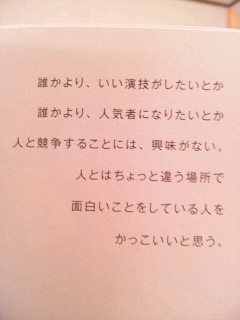 誰かより、いい演技がしたいとか
誰かより、人気者になりたいとか
人と競争することには、興味がない。
人とはちょっと違う場所で
面白いことをしている人を
かっこいいと思う。